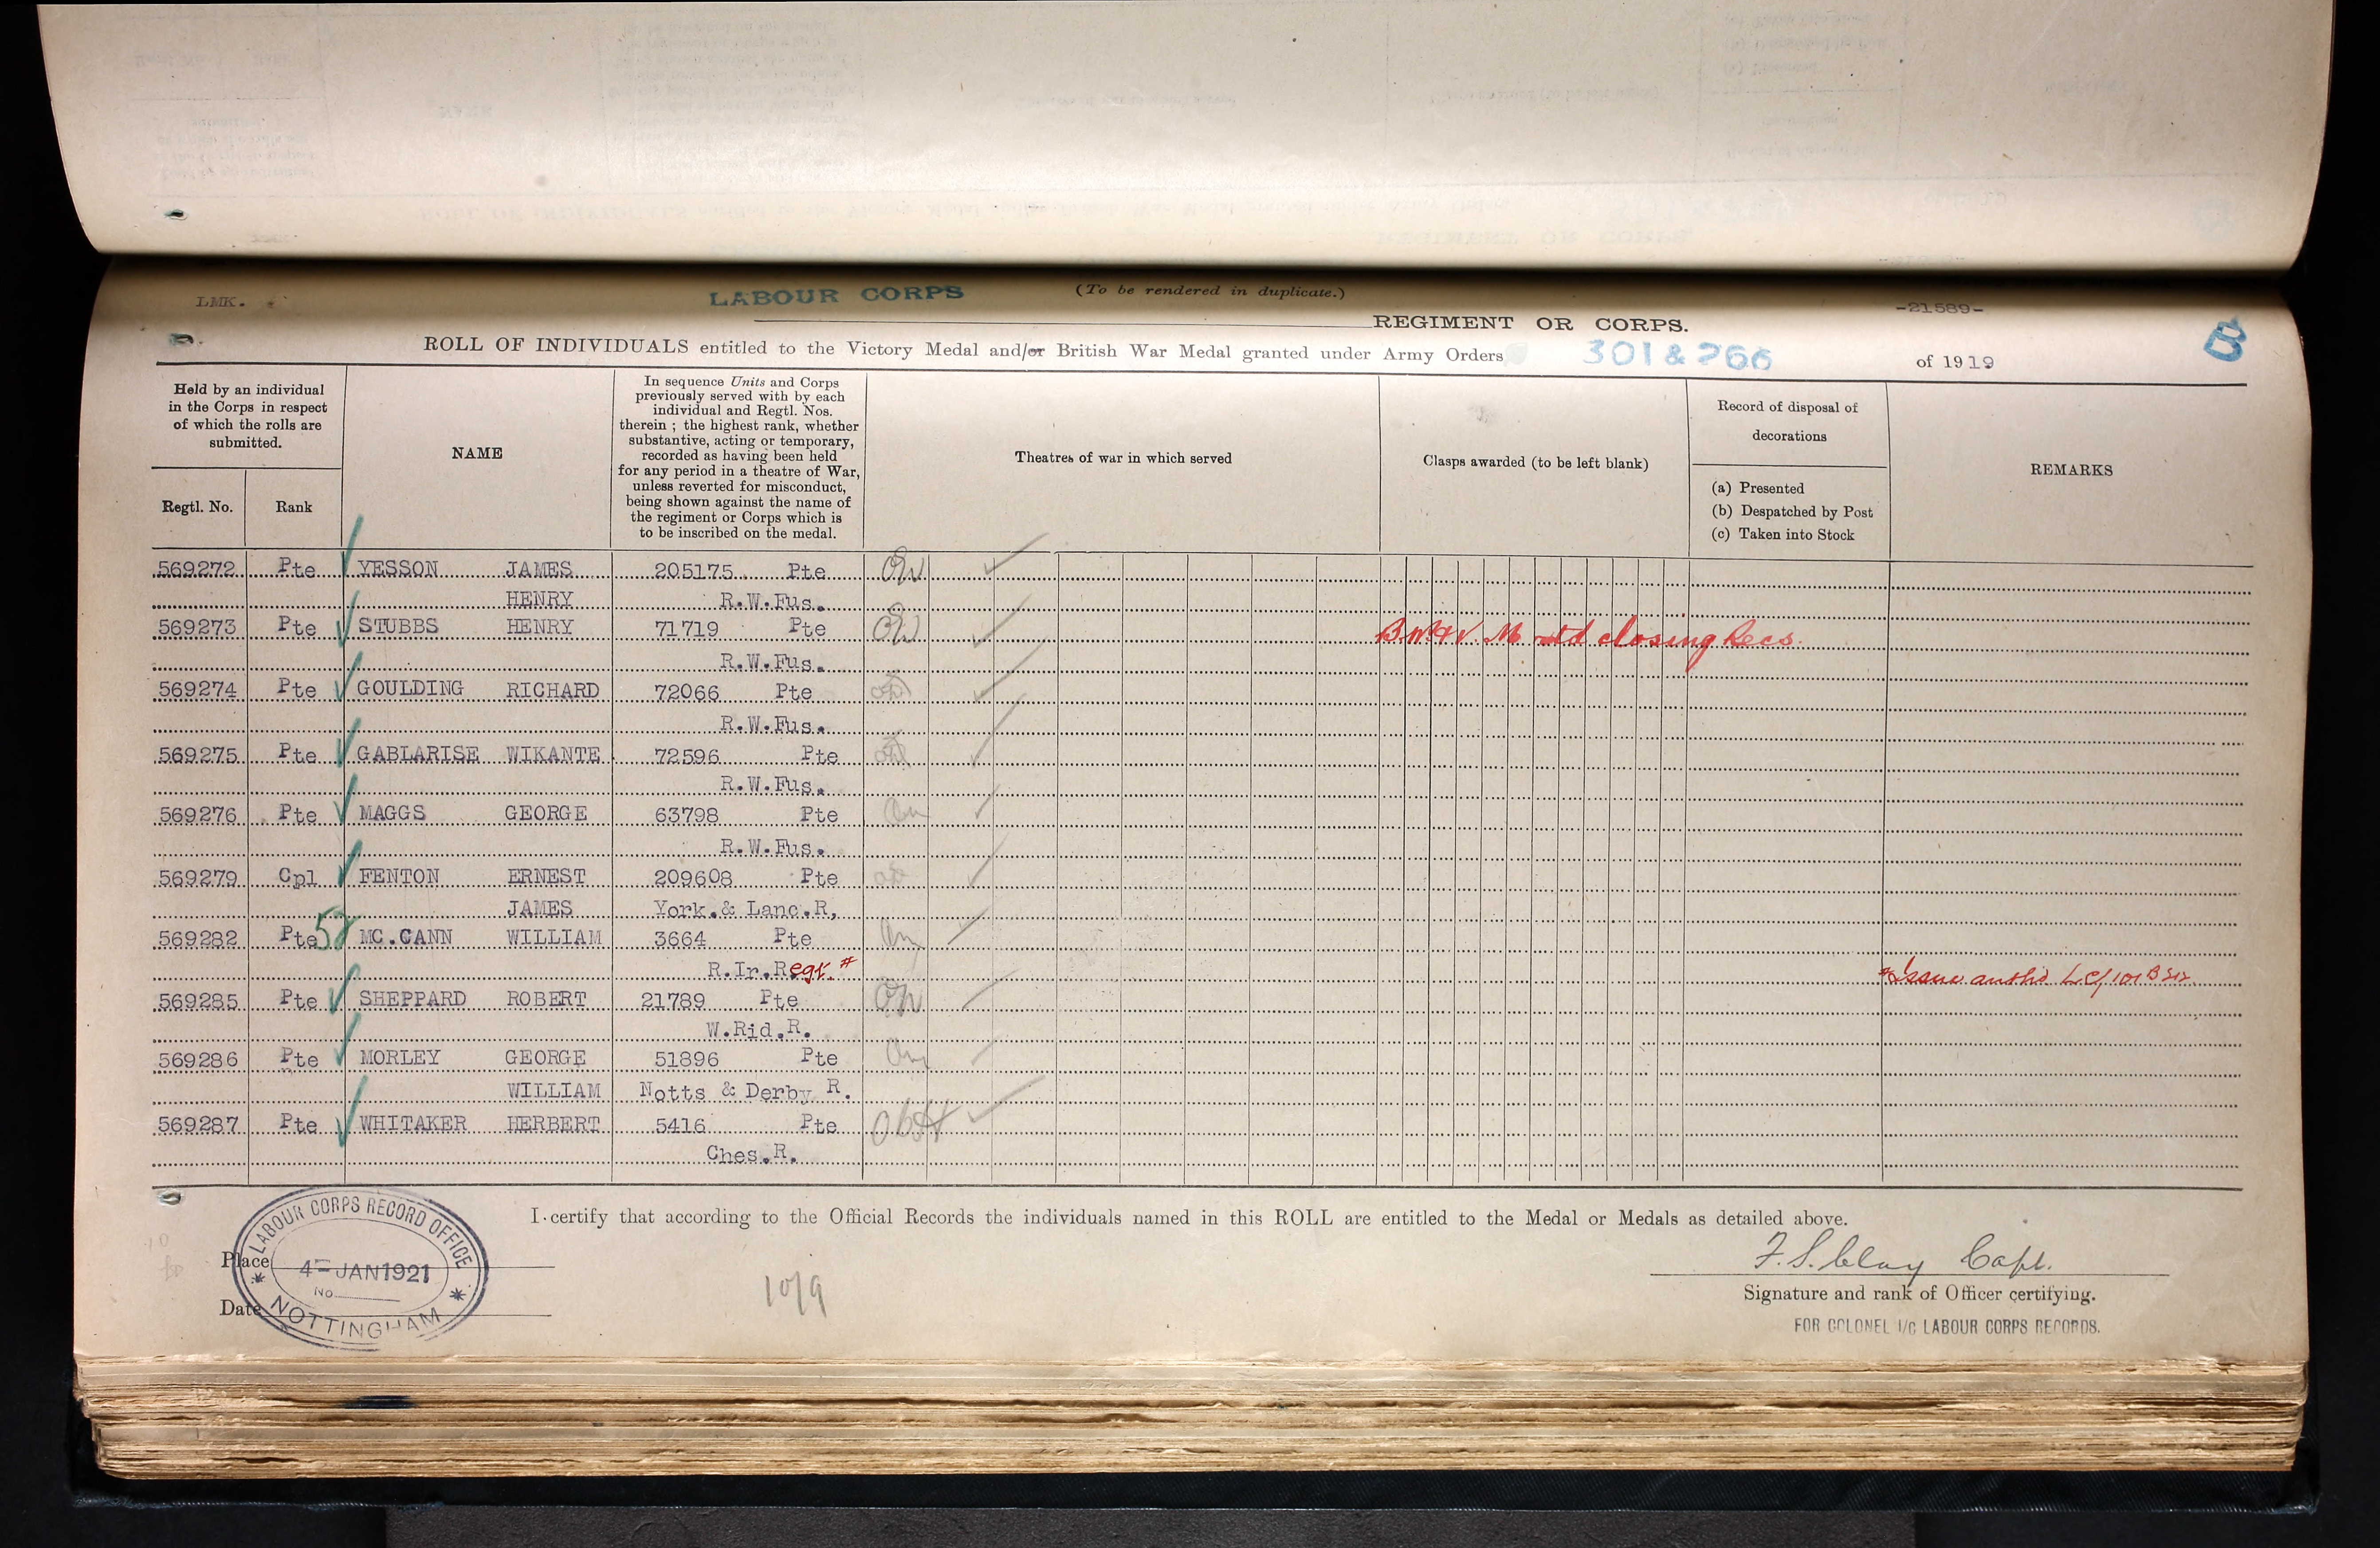 LMK.
LABOUR CORPS
(To be rendered in duplicate.)
-21589-
REGIMENT OR CORPS.
B
ROLL OF INDIVIDUALS entitled to the Victory Medal and/or British War Medal granted under Army Orders 301 & 266 of 1919
Held by an individual
in the Corps in respect
of which the rolls are
submitted.
Regtl. No. Rank
NAME
In sequence Units and Corps
previously served with by each
individual and Regtl. Nos.
therein ; the highest rank, whether
substantive, acting or temporary,
recorded as having been held
for any period in a theatre of War,
unless reverted for misconduct,
being shown against the name of
the regiment or Corps which is
to be inscribed on the medal.
Theatres of war in which served
Clasps awarded (to be left blank)
Record of disposal of
decorations
(a) Presented
(b) Despatched by Post
(c) Taken into Stock
REMARKS
569272 Pte YESSON JAMES 205175 Pte
HENRY R.W.Fus.
569273 Pte STUBBS HENRY 71719 Pte B.W.&V. M retd closing Recs.
R.W.Fus.
569274 Pte GOULDING RICHARD 72066 Pte
R.W.Fus.
569275 Pte GABLARISE WIKANTE 72596 Pte
R.W.Fus.
569276 Pte MAGGS GEORGE 63798 Pte
R.W.Fus.
569279 Cpl FENTON ERNEST 209608 Pte
JAMES York.& Lanc.R,
569282 Pte MC.CANN WILLIAM 3664 Pte
R.Ir.Regt. # # Issue
569285 Pte SHEPPARD ROBERT 21789 Pte
W.Rid.R.
569286 Pte MORLEY GEORGE 51896 Pte
WILLIAM Notts & Derby R.
569287 Pte WHITAKER HERBERT 5416 Pte
Ches.R.
I certify that according to the Official Records the individuals named in this ROLL are entitled to the Medal or Medals as detailed above.
Place
Date
LABOUR CORPS RECORD OFFICE
4- JAN 1921
No.
NOTTINGHAM
10/9
F.S. Clay Capt.
Signature and rank of Officer certifying.
FOR COLONEL I/C LABOUR CORPS RECORDS.